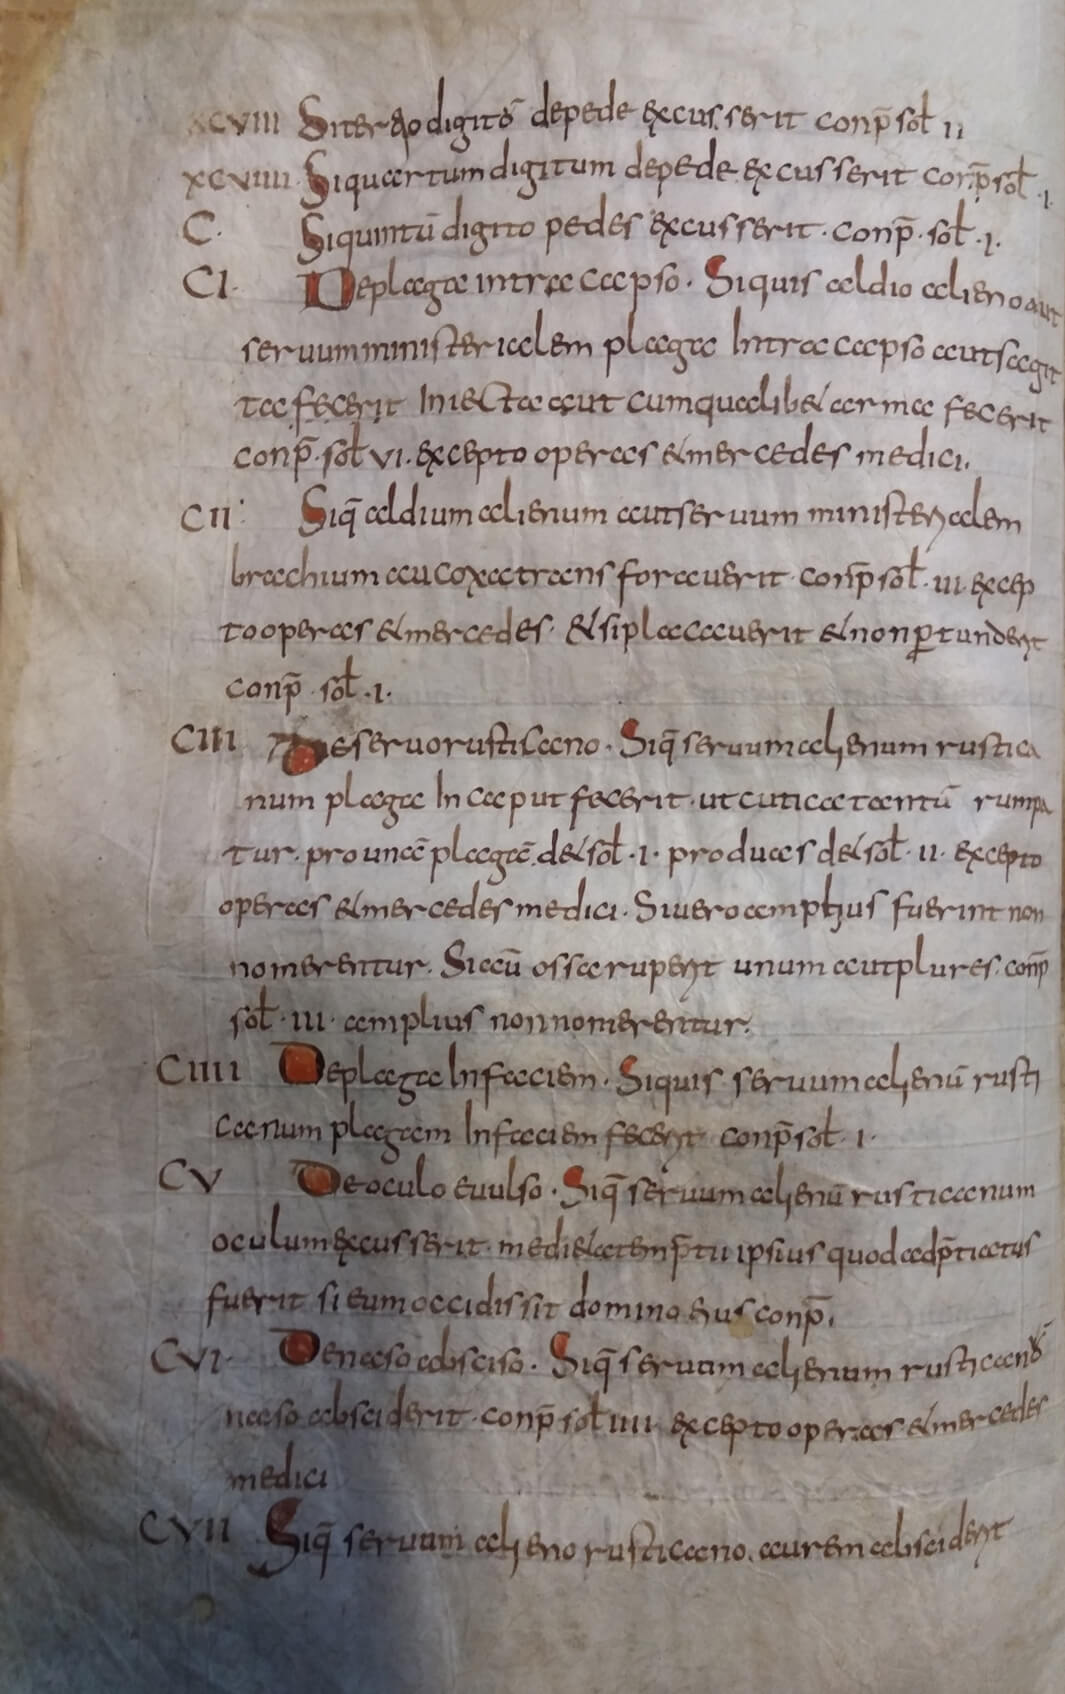 XCVIII Si tertio digito de pede excusserit conp̄ soł II
XCVIIII Si quartum digitum de pede excusserit conp̄ soł .I.
C. Si quintū digito pedes excusserit · conp̄ · soł · I.
CI. De plaga intra capso · Si quis aldio alieno aut
seruum ministerialem plaga Intra capso aut sagit
ta fecerit Iniecta aut cum qualibet arma fecerit
conp̄ · soł VI. excepto operas et mercedes medici.
CII Siq̄ aldium alienum aut seruum ministerialem
brachium au coxa trans forauerit · conp̄ soł · III · excep
to operas et mercedes · Et si placauerit et non ꝑtunderit
conp̄ · soł · I.
CIII De seruo rusticano · Siq̄ seruum alienum rustica
num plaga In caput fecerit · ut cutica tantū rumpa
tur · pro unā plagā det soł · I · pro duas det soł · II · excepto
operas et mercedes medici. Si uero amplius fuerint non
nomerentur. Si aū ossa ruperit unum aut plures. conp̄
soł · III · amplius non nomerentur.
CIIII De plaga In faciem · Si quis seruum alienū rusti
canum plagam In faciem fecerit conp̄ soł · I ·
CV De oculo euulso · Siq̄ seruum alienū rusticanum
oculum excusserit · medietatem p̄tii ipsius quod adp̄tiatus
fuerit si eum occidissit domino eius conp̄.
CVI · De naso absciso · Siq̄ seruum alienum rusticanō
naso absciderit · conp̄ soł IIII excepto operas et mercedes
medici
CVII Siq̄ seruum alieno rusticano aurem absciderit